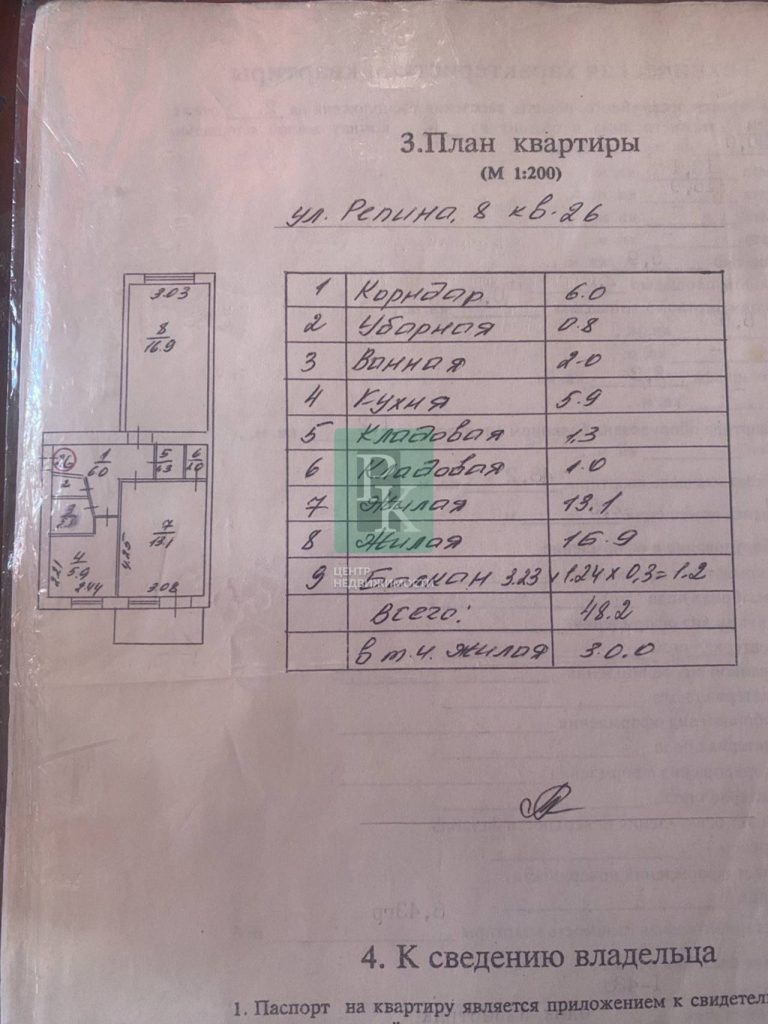 3.План квартиры
(М 1:200)
ул. Репина, 8 кв. 26
1 Коридор 6.0
2 Уборная 0.8
3 Ванная 2.0
4 Кухня 5.9
5 Кладовая 1.3
6 Кладовая 1.0
7 Жилая 13.1
8 Жилая 16.9
9 Балкон 3.23 x 1.24 x 0,3 = 1.2
Всего: 48.2
в т.ч. жилая 30.0
3.03
8
16.9
26
1
6.0
5
1.3
6
1.0
2
3
2.0
7
13.1
4.25
4
5.9
2.21
2.44
3.08
ЦЕНТР
НЕДВИЖИМОСТИ
4. К сведению владельца
1. Паспорт на квартиру является приложением к свидетель